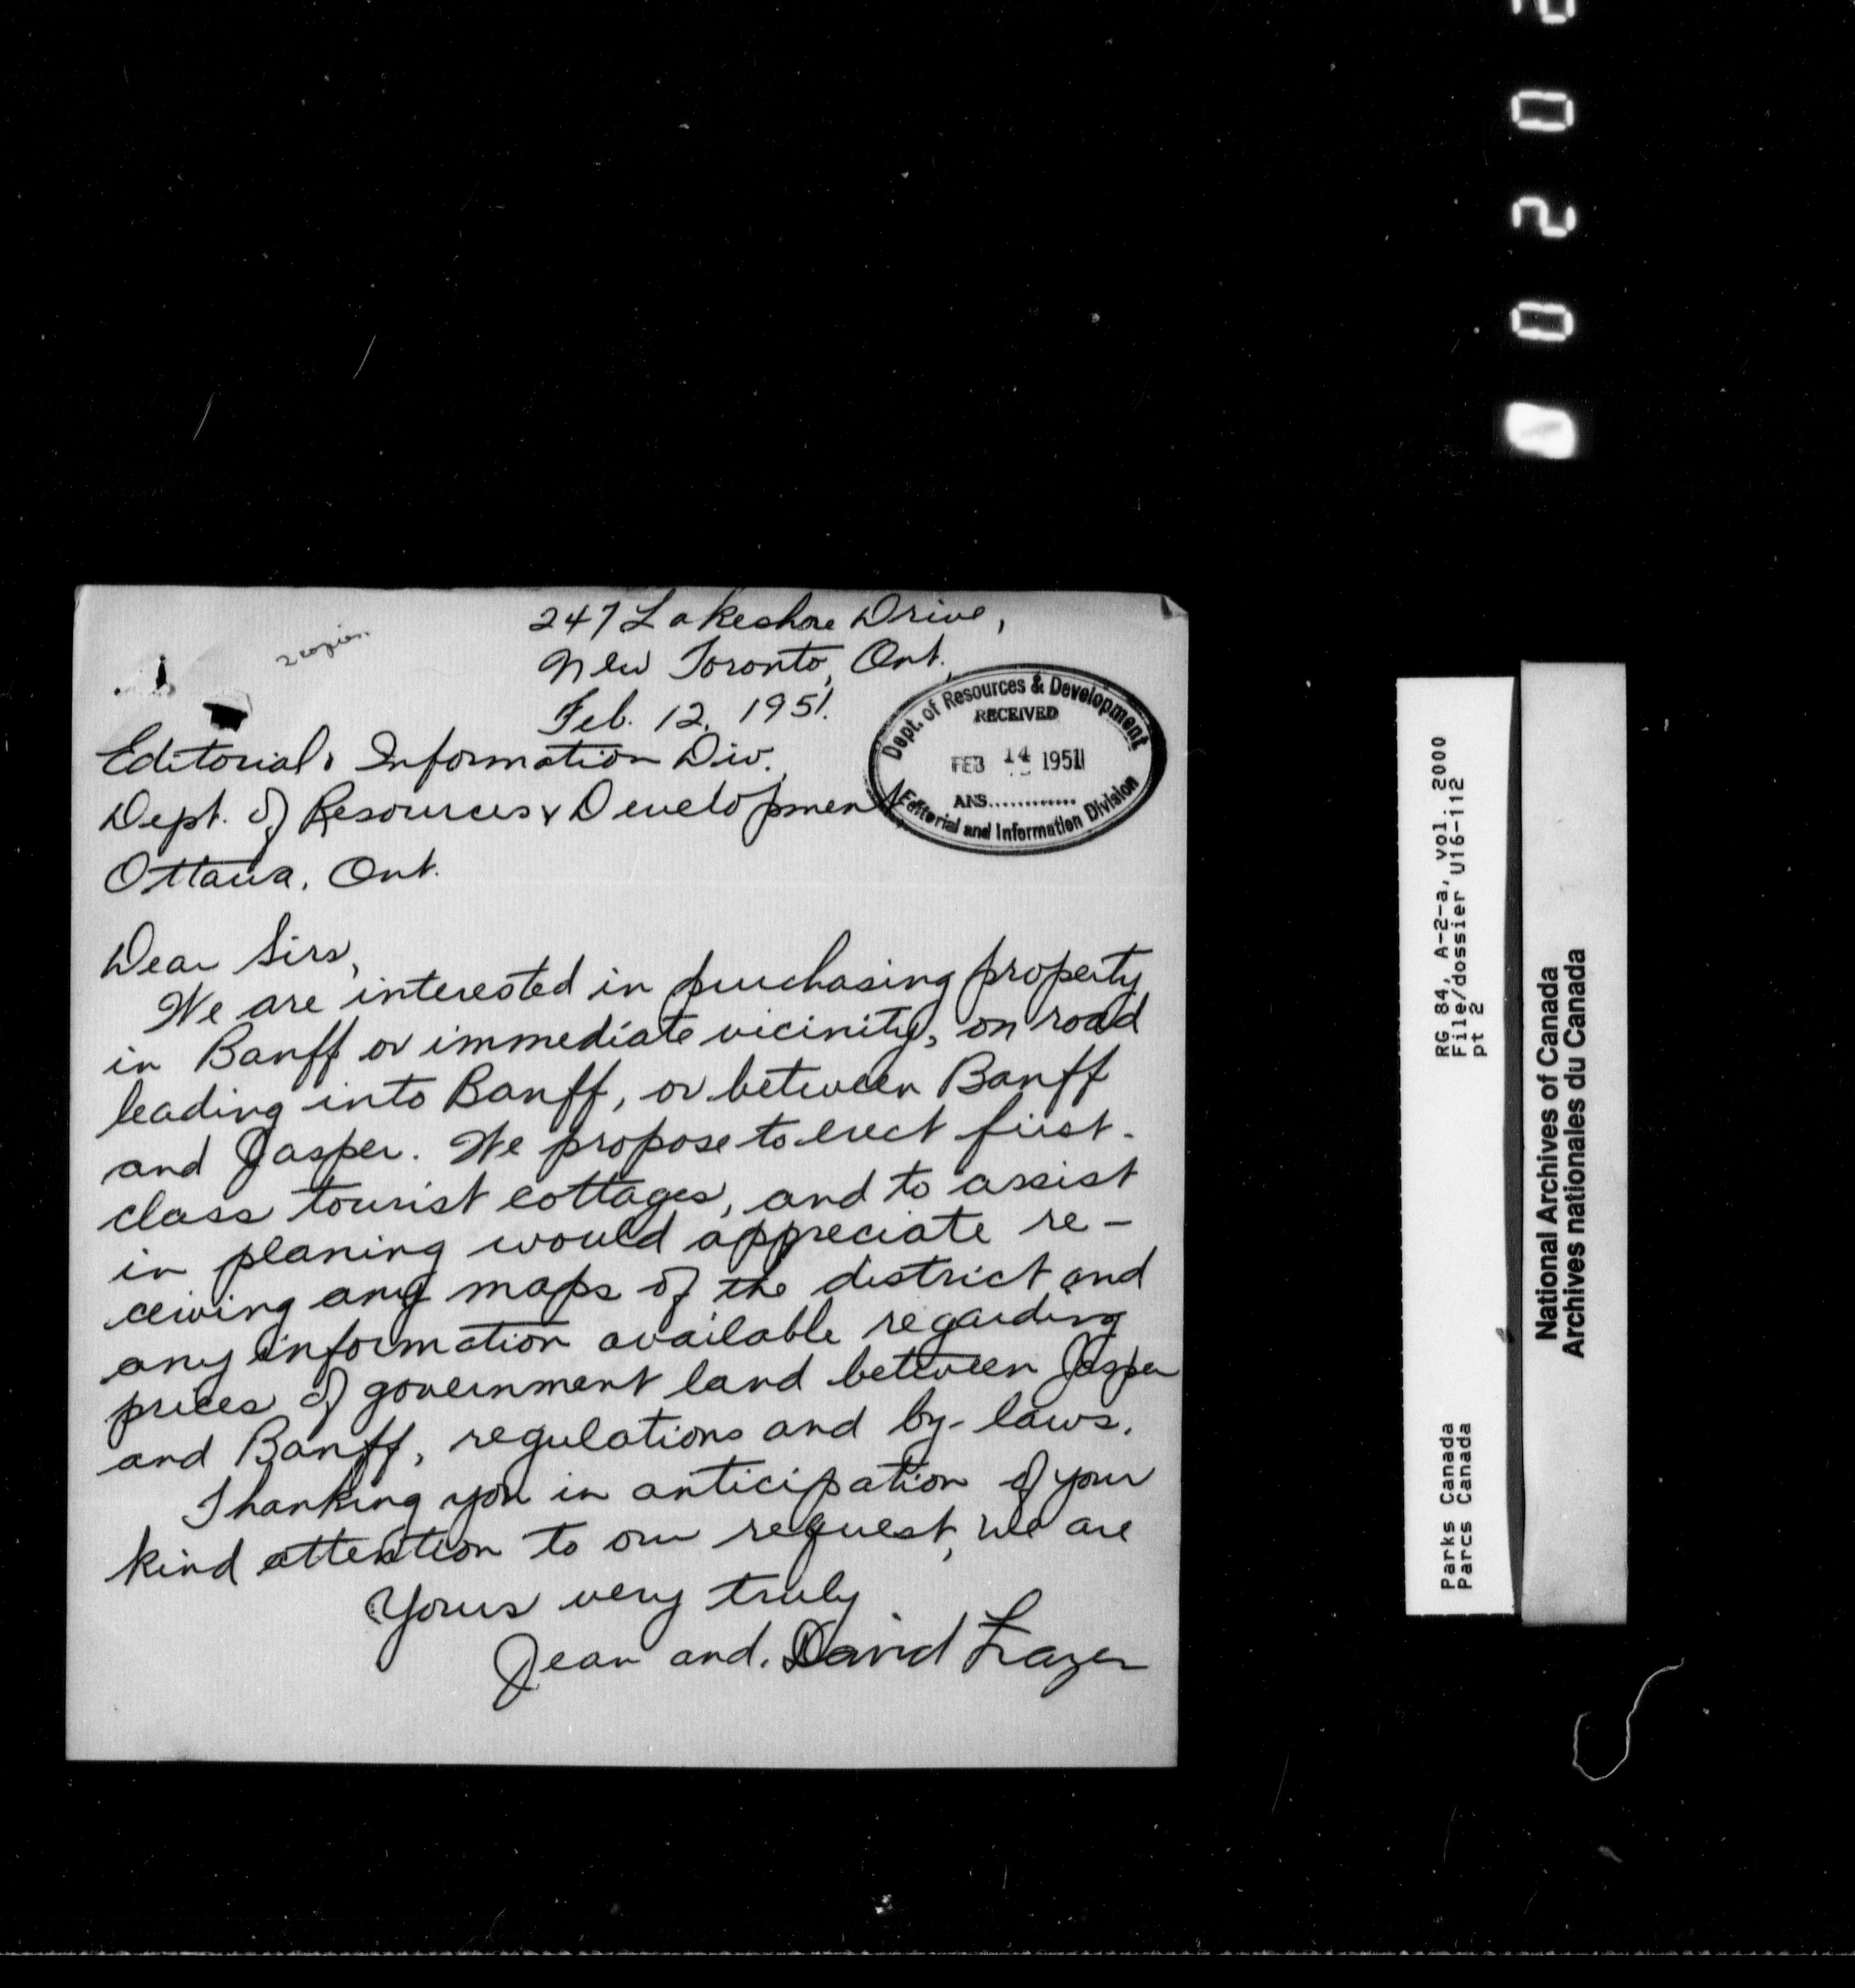 2 copies.
247 Lakeshore Drive,
New Toronto, Ont.,
Feb. 12, 1951.
Dept. of Resources & Development
RECEIVED
FEB 14 1951
ANS............
Editorial and Information Division
Editorial & Information Div.,
Dept. of Resources & Development
Ottawa, Ont.
Dear Sirs,
We are interested in purchasing property
in Banff or immediate vicinity, on road
leading into Banff, or between Banff
and Jasper. We propose to erect first-
class tourist cottages, and to assist
in planing would appreciate re-
ceiving any maps of the district and
any information available regarding
prices of government land between Jasper
and Banff, regulations and by-laws.
Thanking you in anticipation of your
kind attention to our request, we are
Yours very truly
Jean and. David Frazer
RG 84, A-2-a, vol. 2000
File/dossier U16-112
pt 2
Parks Canada
Parcs Canada
National Archives of Canada
Archives nationales du Canada
0 2 0